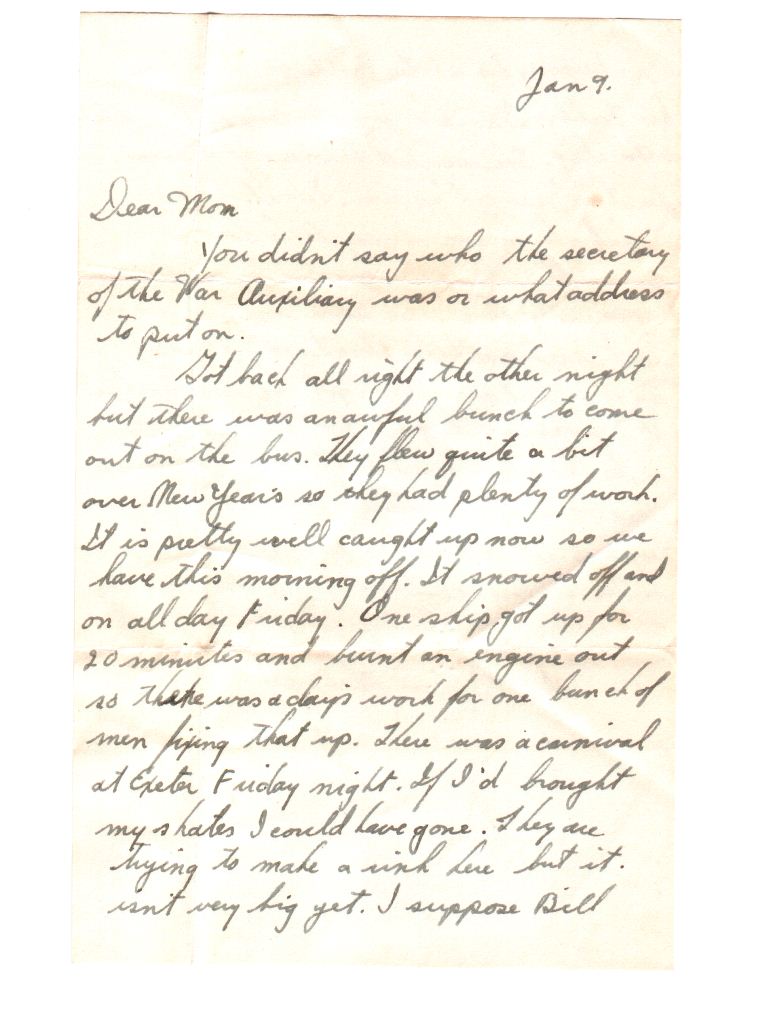 Jan 9.
Dear Mom
You didn't say who the secretary
of the War Auxiliary was or what address
to put on.
Got back all right the other night
but there was an awful bunch to come
out on the bus. They flew quite a bit
over New Year's so they had plenty of work.
It is pretty well caught up now so we
have this morning off. It snowed off and
on all day Friday. One ship got up for
20 minutes and burnt an engine out
so there was a day's work for one bunch of
men fixing that up. There was a carnival
at Exeter Friday night. If I'd brought
my skates I could have gone. They are
trying to make a rink here but it.
isn't very big yet. I suppose Bill